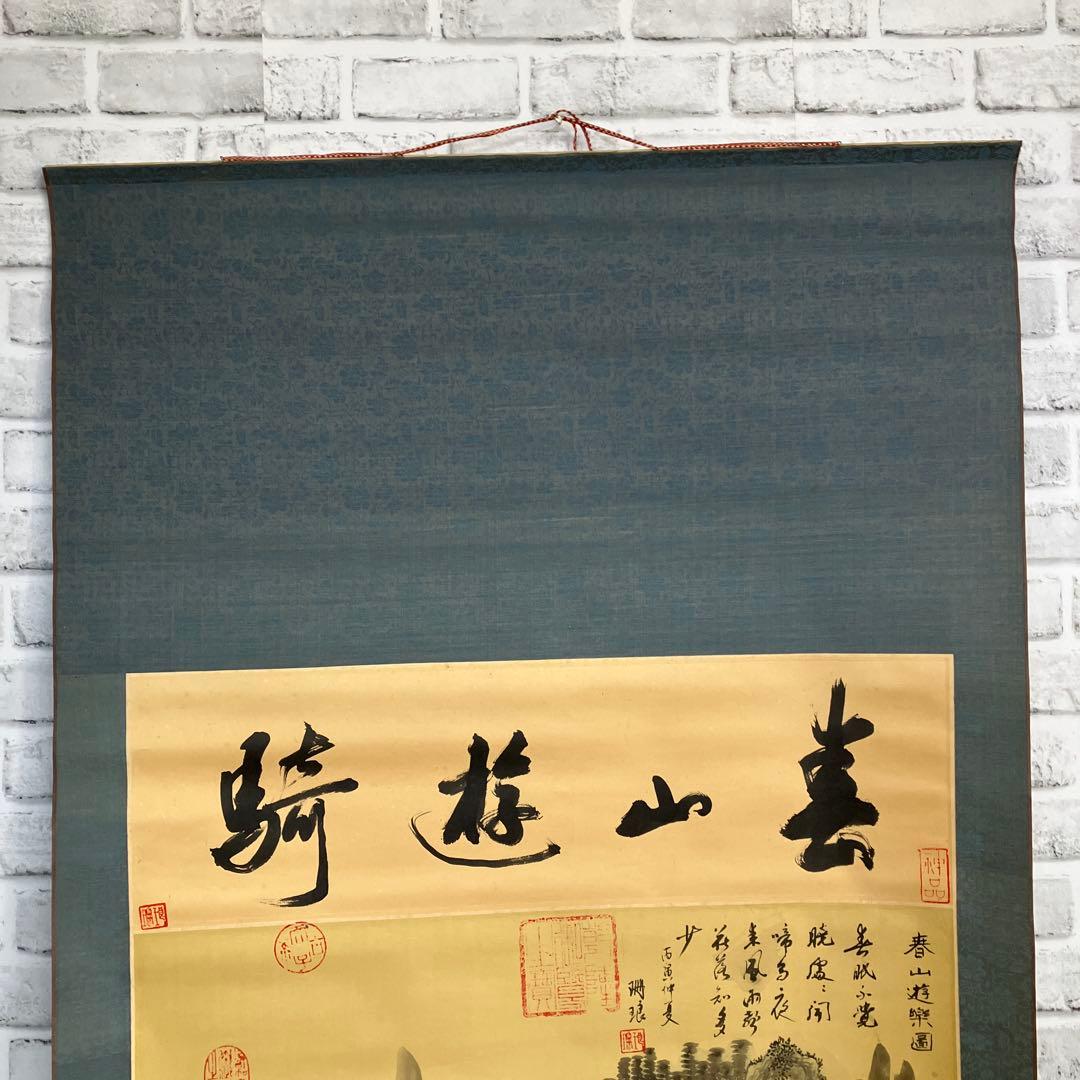 春山遊騎
神品
春山遊樂圖
春眠不覺
曉處〻聞
啼鳥夜
來風雨聲
花落知多
少
丙寅仲夏
珊琅